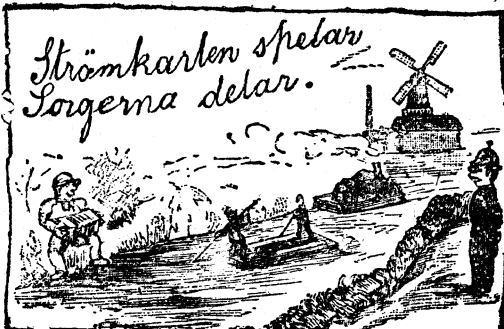 Strömkarlen spelar
Sorgerna delar.